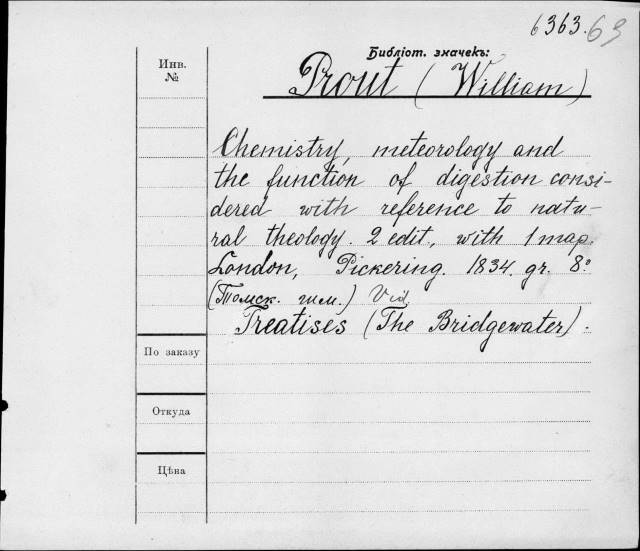 6363.63
Библіот. значекъ:
Prout (William)
Инв.
№
Chemistry, meteorology and
the function of digestion consi-
dered with reference to natu-
ral theology. 2 edit., with 1 map.
London, Pickering. 1834. gr. 8º
(Томск. гим.) Vid.
Treatises (The Bridgewater).
По заказу
Откуда
Цѣна